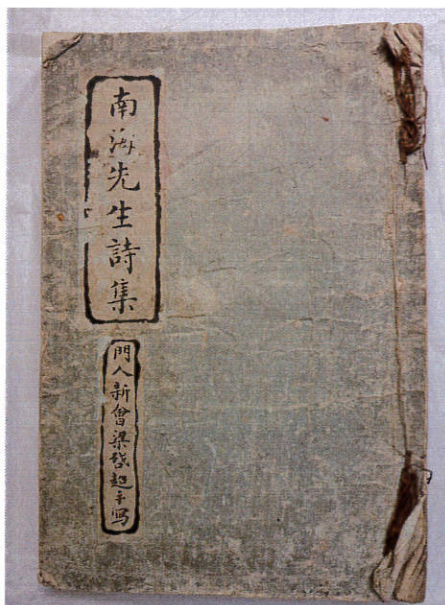 南海先生詩集
門人新會梁啓超手寫